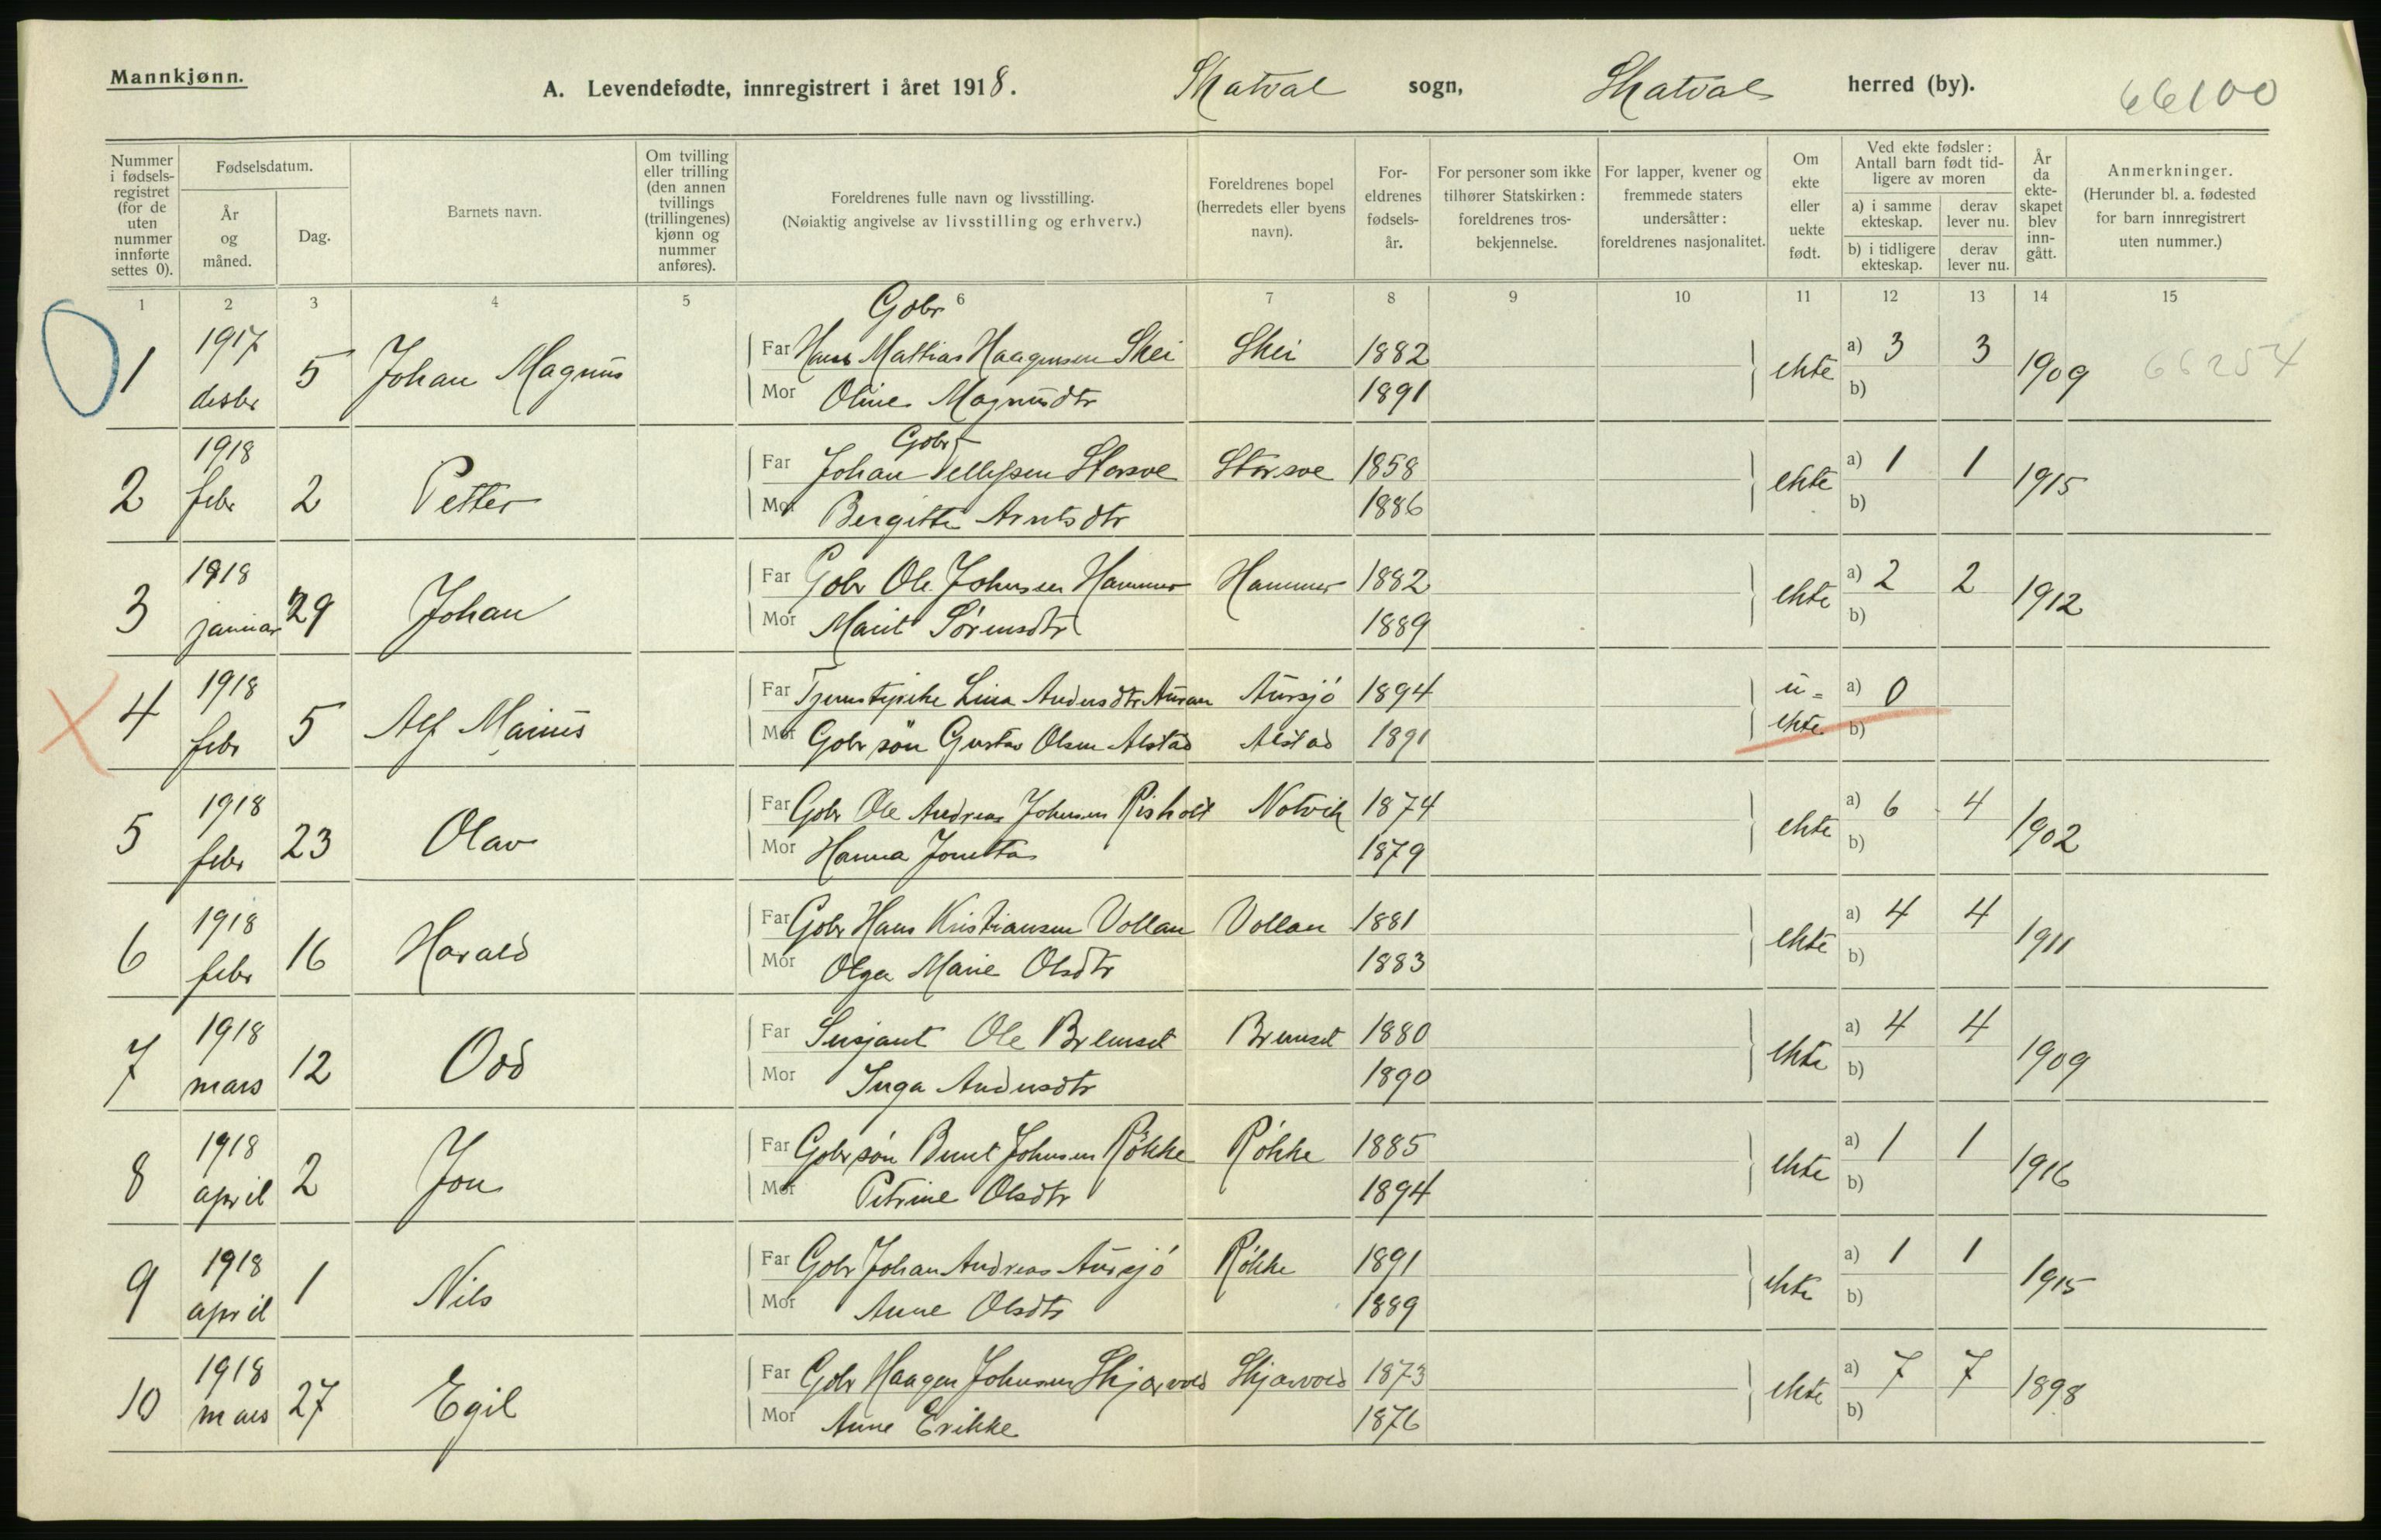 Mannkjønn.
A. Levendefødte, innregistrert i året 1918. Skatval sogn, Skatval herred (by). 66100
Nummer i fødsels-registret (for de uten nummer innførte settes 0).
Fødselsdatum.
År og måned.
Dag.
Barnets navn.
Om tvilling eller trilling (den annen tvillings (trillingenes) kjønn og nummer anføres).
Foreldrenes fulle navn og livsstilling.
(Nøiaktig angivelse av livsstilling og erhverv.)
Foreldrenes bopel (herredets eller byens navn).
For-eldrenes fødsels-år.
For personer som ikke tilhører Statskirken: foreldrenes tros-bekjennelse.
For lapper, kvener og fremmede staters undersåtter: foreldrenes nasjonalitet.
Om ekte eller uekte født.
Ved ekte fødsler: Antall barn født tid-ligere av moren
a) i samme ekteskap. derav lever nu.
b) i tidligere ekteskap. derav lever nu.
År da ekte-skapet blev inn-gått.
Anmerkninger.
(Herunder bl. a. fødested for barn innregistrert uten nummer.)
1 2 3 4 5 6 7 8 9 10 11 12 13 14 15
Gbr
1 1917 desbr 5 Johan Magnus Far Hans Mathias Haagensen Skei Skei 1882 ekte a) 3 3 1909 66254
Mor Oline Magnusdtr 1891 b)
Gbr
2 1918 febr 2 Petter Far Johan Pettersen Storsve Storsve 1858 ekte a) 1 1 1915
Mor Bergitte Arntsdtr 1886 b)
3 1918 januar 29 Johan Far Gbr Ole Johnsen Hammer Hammer 1882 ekte a) 2 2 1912
Mor Marit Sörensdtr 1889 b)
4 1918 febr 5 Alf Marius Far Tjenstepike Lina Andersdtr Auran Aursjö 1894 u=ekte a) 0
Mor Gbr sön Gustav Olsen Alstad Alstad 1891 b)
5 1918 febr 23 Olav Far Gbr Ole Andreas Johnsen Risholt Notvik 1874 ekte a) 6 4 1902
Mor Hanna Jonetta 1879 b)
6 1918 febr 16 Harald Far Gbr Hans Kristiansen Vollan Vollan 1881 ekte a) 4 4 1911
Mor Olga Marie Olsdtr 1883 b)
7 1918 mars 12 Odd Far Sersjant Ole Bremset Bremset 1880 ekte a) 4 4 1909
Mor Inga Andersdtr 1890 b)
8 1918 april 2 Jon Far Gbr sön Bernt Johnsen Rökke Rökke 1885 ekte a) 1 1 1916
Mor Petrine Olsdtr 1894 b)
9 1918 april 1 Nils Far Gbr Johan Andreas Aursjö Rökke 1891 ekte a) 1 1 1915
Mor Anne Olsdtr 1889 b)
10 1918 mars 27 Egil Far Gbr Haagen Johnsen Skjervold Skjervold 1873 ekte a) 7 7 1898
Mor Anne Erikke 1876 b)